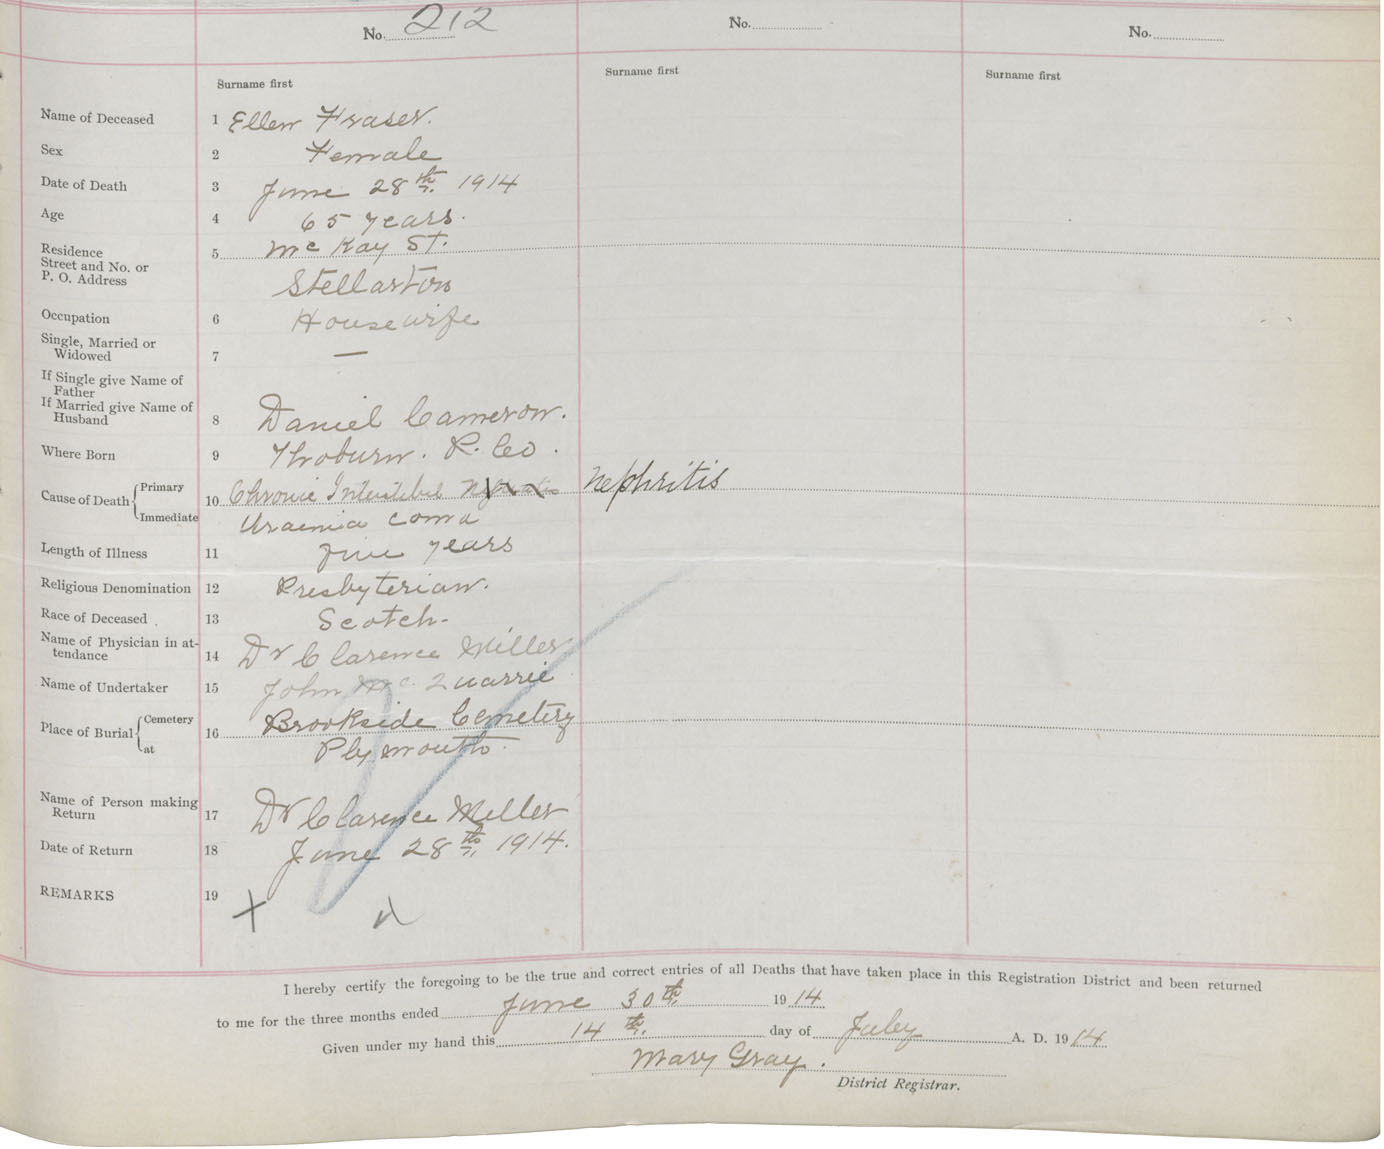 No. 212
No.
No.
Surname first
Surname first
Surname first
Name of Deceased 1 Ellen Fraser.
Sex 2 Female
Date of Death 3 June 28th. 1914
Age 4 65 years.
Residence
Street and No. or
P. O. Address
5 McKay St.
Stellarton
Occupation 6 Housewife
Single, Married or
Widowed 7 —
If Single give Name of
Father
If Married give Name of
Husband 8 Daniel Cameron.
Where Born 9 Thorburn. P. Co.
Cause of Death Primary 10 Chronic Nephritis
Immediate Uraemia coma
Length of Illness 11 five years
Religious Denomination 12 Presbyterian.
Race of Deceased 13 Scotch-
Name of Physician in at-
tendance 14 Dr Clarence Miller
Name of Undertaker 15 John McQuarrie
Place of Burial Cemetery 16 Brookside Cemetery
at Plymouth.
Name of Person making
Return 17 Dr Clarence Miller
Date of Return 18 June 28th 1914.
REMARKS 19
I hereby certify the foregoing to be the true and correct entries of all Deaths that have taken place in this Registration District and been returned
to me for the three months ended June 30th 1914
Given under my hand this 14th. day of July A. D. 1914
Mary Gray.
District Registrar.